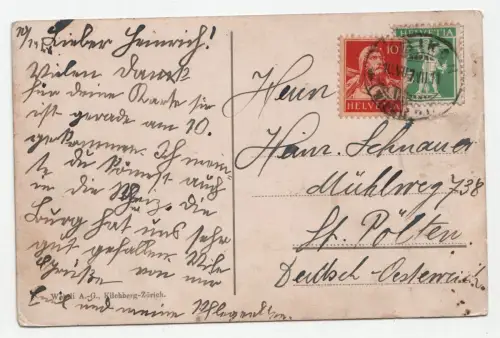 Lieber Heinrich!
Vielen Dank
für deine Karte sie
ist gerade am 10.
gekommen. Ich mein-
te du kömmst auch
in die Schweiz. Die
Burg hat uns sehr
gut gefallen. Viele
Grüße von mir
und meine Pflegeeltern.
Wehrli A.-G., Kilchberg-Zürich.
10
HELVETIA
HELVETIA
Herrn
Heinr. Schnauer
Mühlweg 738
St. Pölten
Deutsch-Oesterreich!